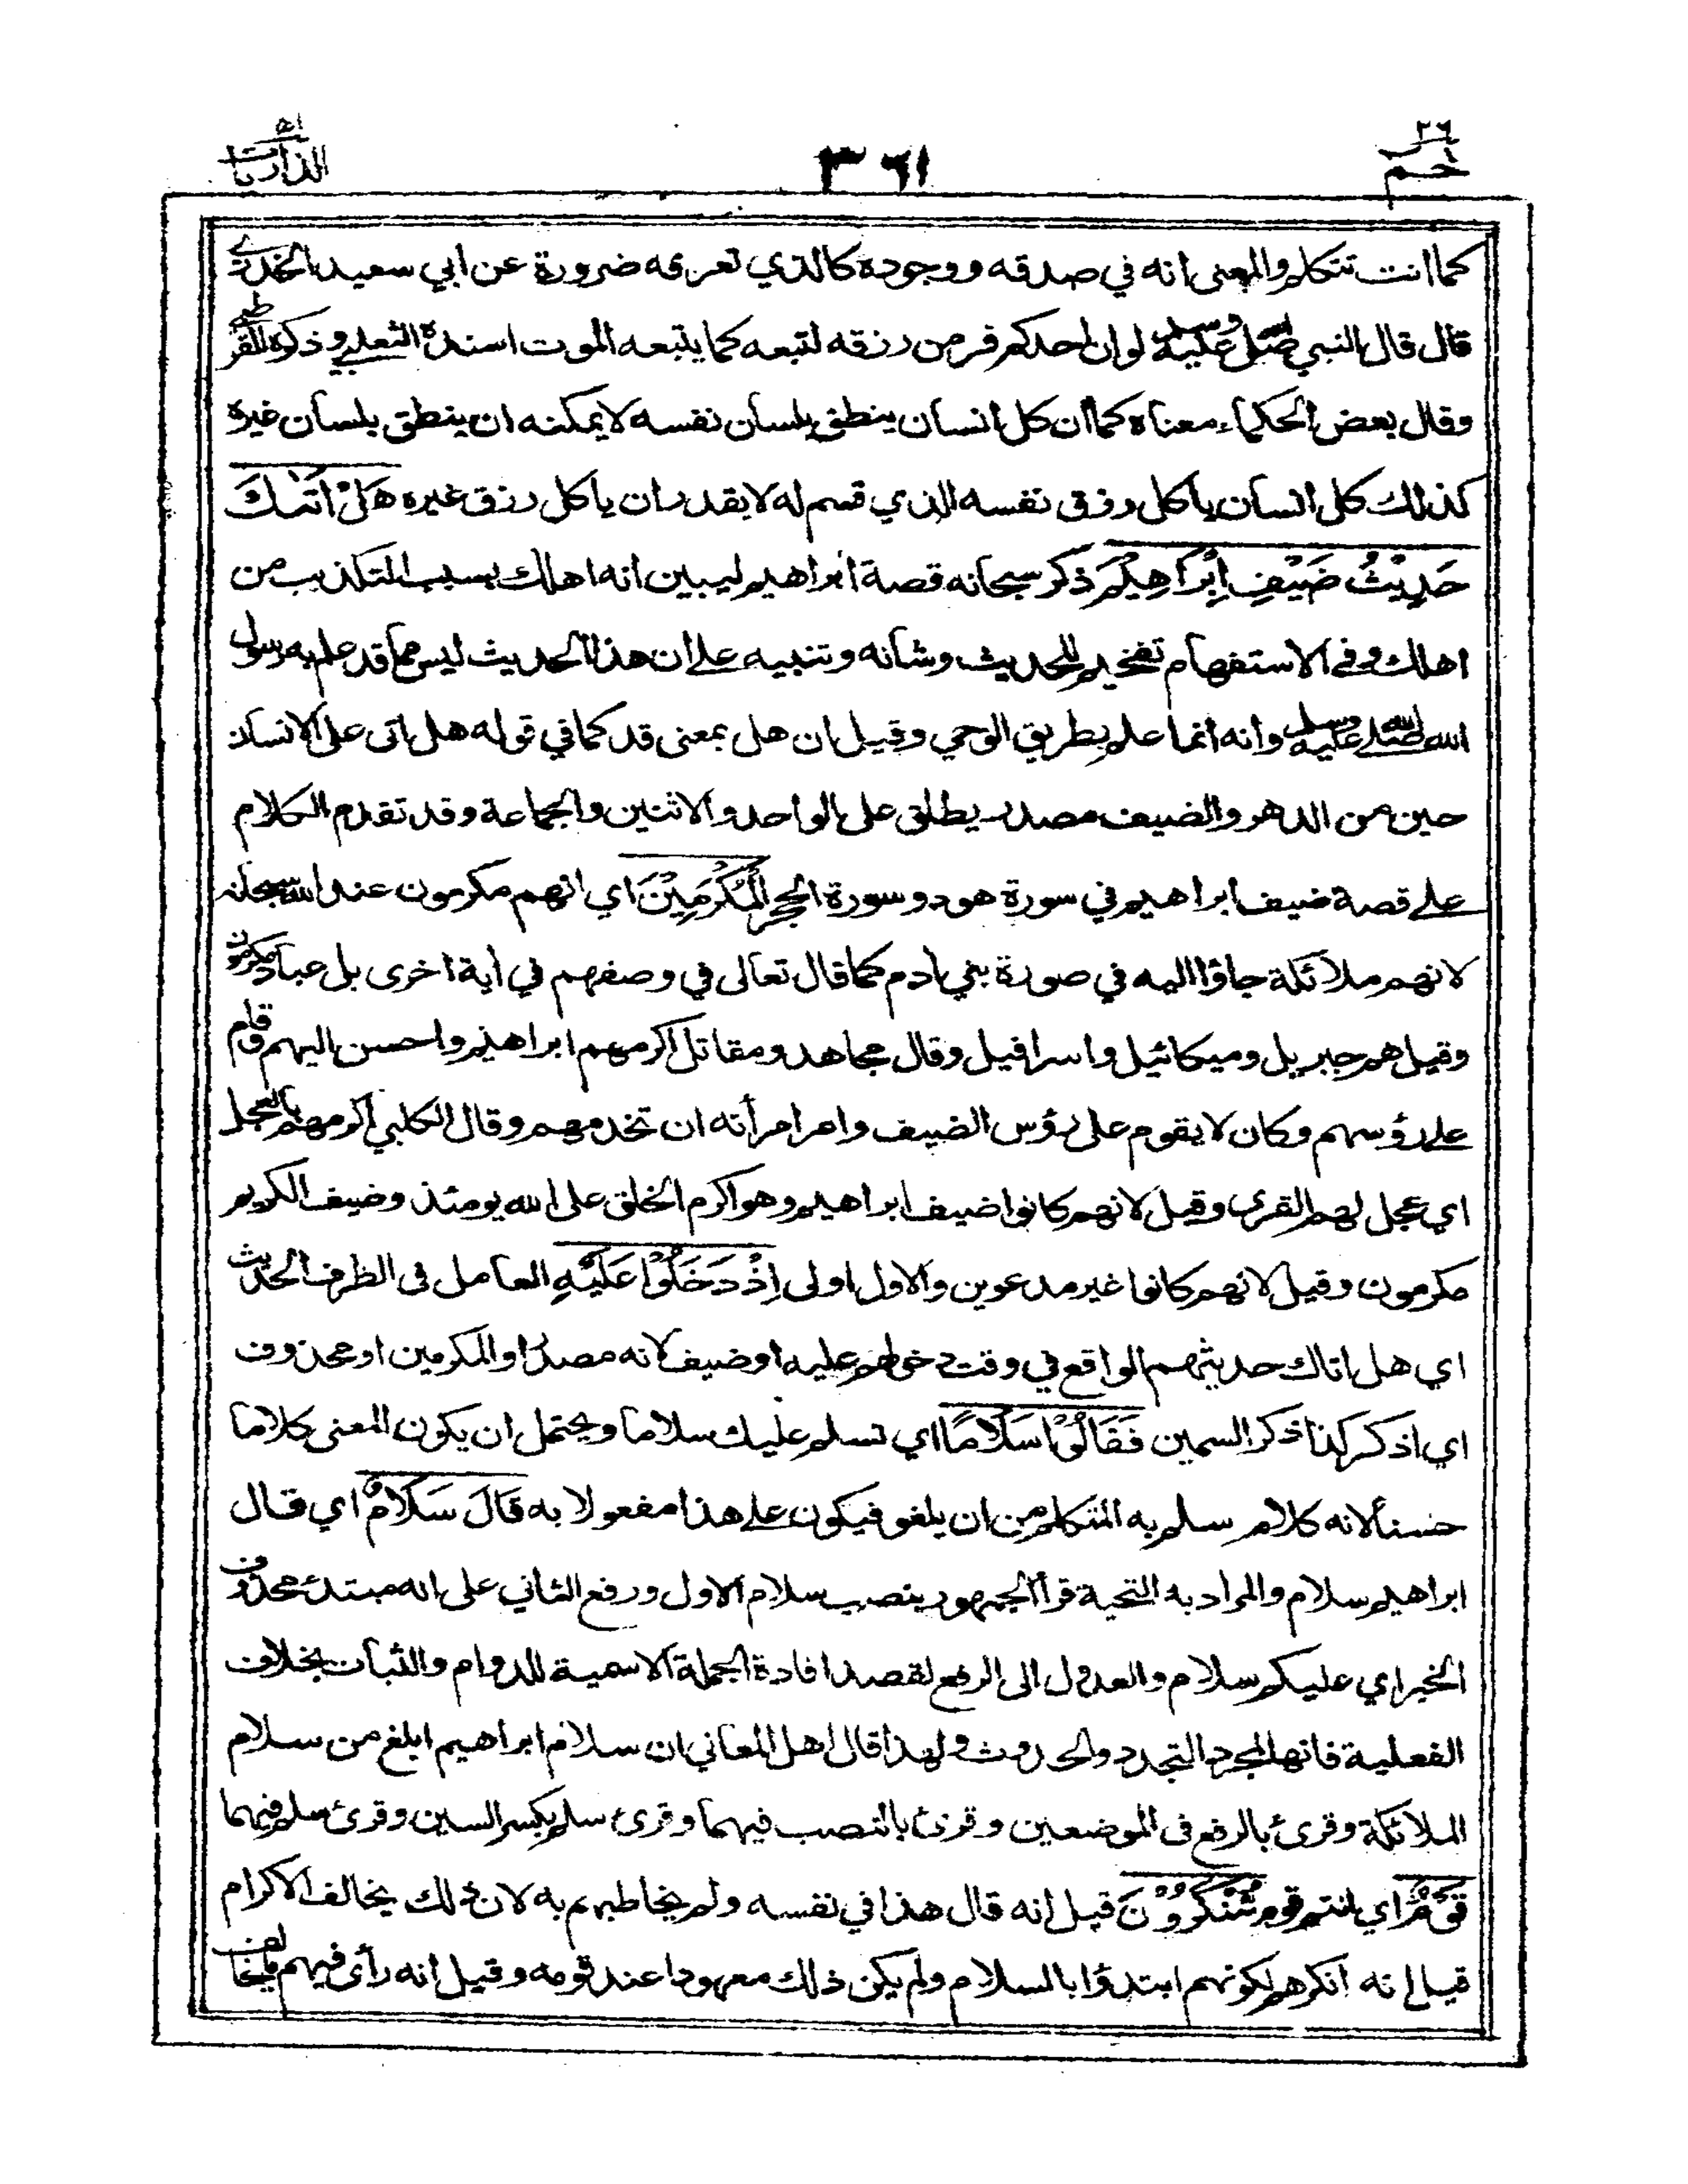 ٢٦
حم
٣٦١
٥١
الذاريات
كما انت تتكلم والمعنى انه في صدقه ووجوده كالذي تعرفه ضرورة عن ابي سعيد الخدري
قال قال النبي صلى الله عليه وسلم لو ان احدكم فر من رزقه لتبعه كما يتبعه الموت اسنده الثعلبي وذكره القرطبي
وقال بعض الحكماء معناه كما ان كل انسان ينطق بلسان نفسه لا يمكنه ان ينطق بلسان غيره
كذلك كل انسان ياكل رزق نفسه الذي قسم له لا يقدر ان ياكل رزق غيره هَلْ اَتٰىكَ
حَدِيْثُ ضَيْفِ اِبْرَاهِيْمَ ذكر سبحانه قصة ابراهيم ليبين انه اهلك بسبب التكذيب من
اهلك وفي الاستفهام تفخيم للحديث وشانه وتنبيه على ان هذا الحديث ليس مما قد علم به رسول
الله صلى الله عليه وسلم وانه انما علم بطريق الوحي وقيل ان هل بمعنى قد كما في قوله هل اتى على الانسان
حين من الدهر والضيف مصدر يطلق على الواحد والاثنين والجماعة وقد تقدم الكلام
على قصة ضيف ابراهيم في سورة هود وسورة الحجر الْمُكْرَمِيْنَ اي انهم مكرمون عند الله سبحانه
لانهم ملائكة جاؤا اليه في صورة بني ادم كما قال تعالى في وصفهم في اية اخرى بل عباد مكرمون
وقيل هم جبريل وميكائيل واسرافيل وقال مجاهد ومقاتل اكرمهم ابراهيم واحسن اليهم وقام
على رؤسهم وكان لا يقوم على رؤس الضيف وامر امرأته ان تخدمهم وقال الكلبي اكرمهم بالعجل
اي عجل لهم القرى وقيل لانهم كانوا ضيف ابراهيم وهو اكرم الخلق على الله يومئذ وضيف الكريم
مكرمون وقيل لانهم كانوا غير مدعوين والاول اولى اِذْ دَخَلُوْا عَلَيْهِ العامل في الظرف الحديث
اي هل اتاك حديثهم الواقع في وقت دخولهم عليه او ضيف لانه مصدر او المكرمين او محذوف
اي اذكر كذا ذكر السمين فَقَالُوْا سَلَامًا اي نسلم عليك سلاما ويحتمل ان يكون المعنى كلاما
حسنا لانه كلام سلم به المتكلم من ان يلغو فيكون على هذا مفعولا به قَالَ سَلَامٌ اي قال
ابراهيم سلام والمراد به التحية قرأ الجمهور بنصب سلام الاول ورفع الثاني على انه مبتدئ محذوف
الخبر اي عليكم سلام والعدول الى الرفع لقصد افادة الجملة الاسمية للدوام والثبات بخلاف
الفعلية فانها لمجرد التجدد والحدوث ولهذا قال اهل المعاني ان سلام ابراهيم ابلغ من سلام
الملائكة وقرئ بالرفع في الموضعين وقرئ بالنصب فيهما وقرئ سلم بكسر السين وقرئ سلم فيهما
قَوْمٌ اي انتم قوم مُّنْكَرُوْنَ قيل انه قال هذا في نفسه ولم يخاطبهم به لان ذلك يخالف الاكرام
قيل انه انكرهم لكونهم ابتدؤا بالسلام ولم يكن ذلك معهودا عند قومه وقيل انه رأى فيهم ما يخالف